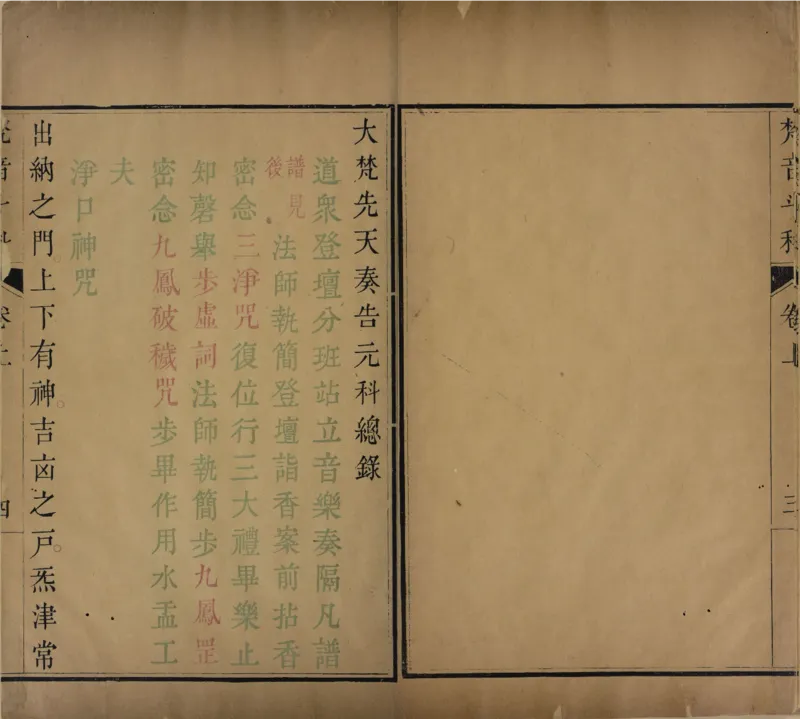 梵音斗科
卷上
三
大梵先天奏告元科總錄
道眾登壇分班站立音樂奏隔凡譜
譜見後
法師執簡登壇詣香案前拈香
密念三淨咒復位行三大禮畢樂止
知磬舉步虛詞法師執簡步九鳳罡
密念九鳳破穢咒步畢作用水盂工
夫
淨口神咒
出納之門。上下有神。吉凶之戶。炁津常
卷上
四